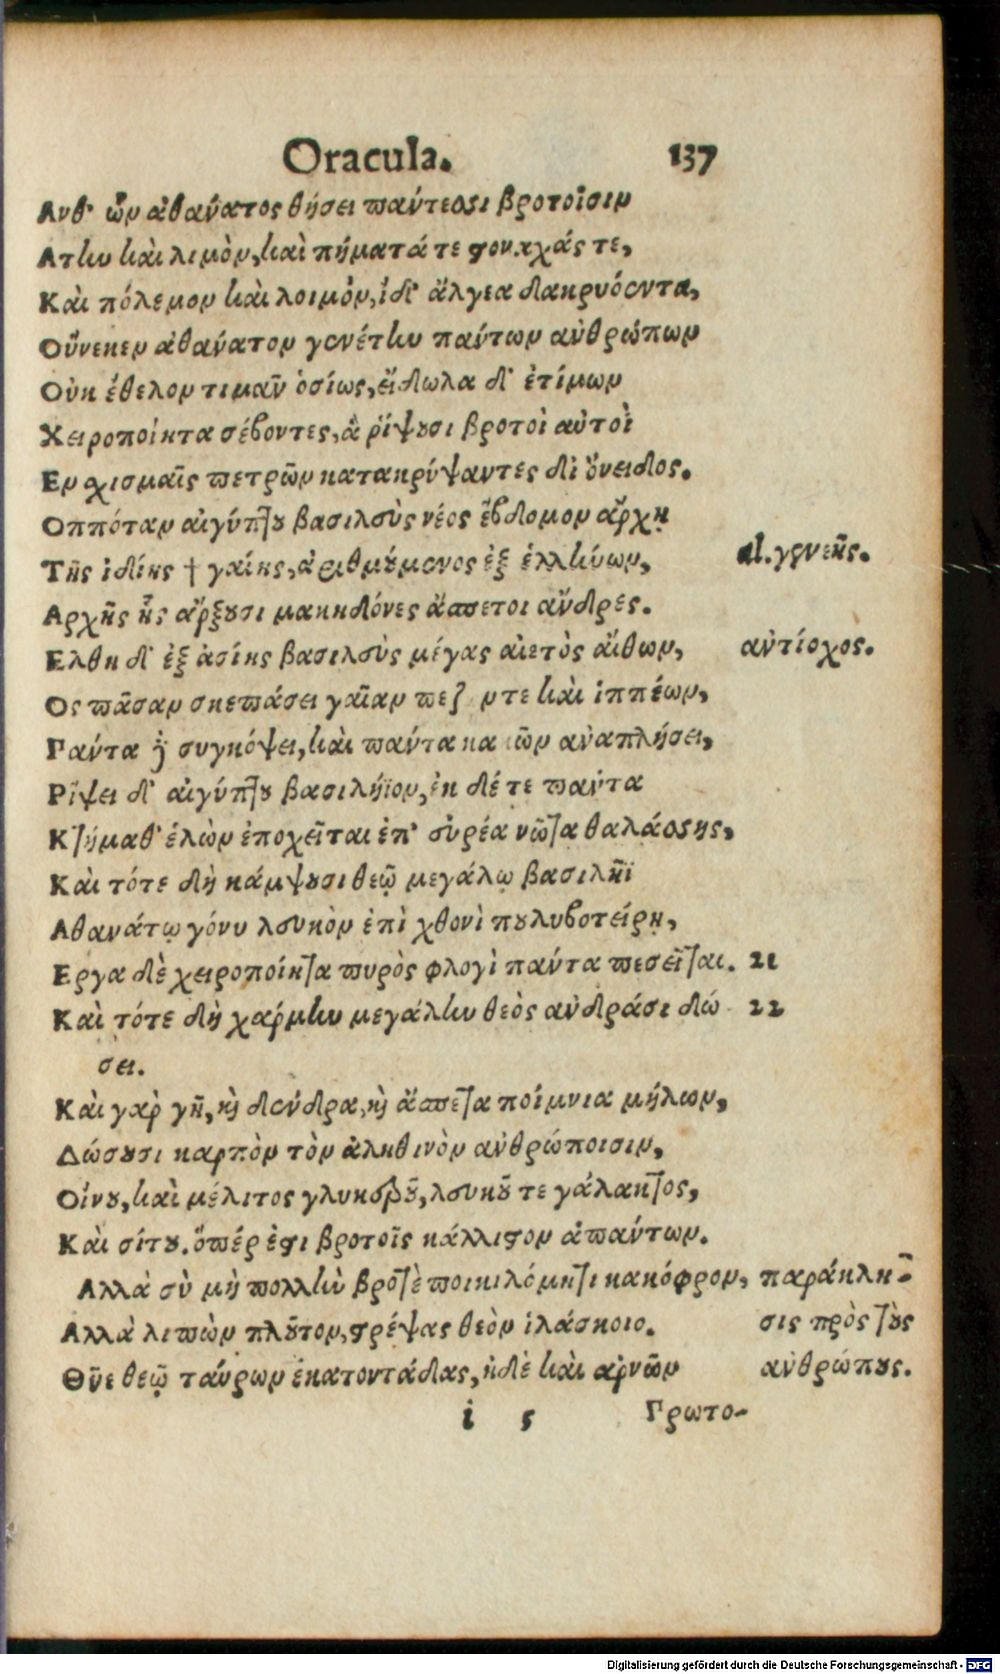 Oracula. 137
Ανθ' ὧν ἀθάνατος θήσει πάντεσσι βροτοῖσιν
Ατίω καὶ λιμὸν, καὶ πήματά τε στοναχάς τε,
Καὶ πόλεμον καὶ λοιμὸν, ἰδ' ἄλγεα δακρυόεντα,
Οὕνεκεν ἀθάνατον γενέτην πάντων ἀνθρώπων
Οὐκ ἔθελον τιμᾶν ὁσίως, εἴδωλα δ' ἐτίμων
Χειροποίητα σέβοντες, ἃ ῥίψουσι βροτοὶ αὐτοὶ
Εν χισμαῖς πετρῶν κατακρύψαντες δι' ὄνειδος.
Οππόταν αἰγύπτου βασιλεὺς νέος ἕβδομον ἄρχῃ
Τῆς ἰδίης † γαίης, ἀριθμούμενος ἐξ ἑλλήνων, al. γενεῆς.
Αρχῆς ἧς ἄρξουσι μακηδόνες ἄσπετοι ἄνδρες.
Ελθη δ' ἐξ ἀσίης βασιλεὺς μέγας αἰετὸς αἴθων, ἀντίοχος.
Ος πᾶσαν σκεπάσει γαῖαν πεζ ν τε καὶ ἱππέων,
Γάντα δὲ συγκόψει, καὶ πάντα κα ῶν ἀναπλήσει,
Ρίψει δ' αἰγύπτου βασιλήϊον, ἐκ δέ τε πάντα
Κτήμαθ' ἑλὼν ἐποχεῖται ἐπ' εὐρέα νῶτα θαλάσσης,
Καὶ τότε δὴ κάμψουσι θεῷ μεγάλῳ βασιλῆϊ
Αθανάτῳ γόνυ λευκὸν ἐπὶ χθονὶ πουλυβοτείρῃ,
Εργα δὲ χειροποίητα πυρὸς φλογὶ πάντα πεσεῖται. 21
Καὶ τότε δὴ χάρμην μεγάλην θεὸς ἀνδράσι δώ 22
σει.
Καὶ γὰρ γῆ, καὶ δένδρα, καὶ ἄσπετα ποίμνια μήλων,
Δώσουσι καρπὸν τὸν ἀληθινὸν ἀνθρώποισιν,
Οἴνου, καὶ μέλιτος γλυκεροῦ, λευκοῦ τε γάλακτος,
Καὶ σίτου. ὅπέρ ἐστι βροτοῖς κάλλιστον ἁπάντων.
Αλλὰ σὺ μὴ πολλὼ βροτὲ ποικιλόμητι κακόφρον, παράκλη-
Αλλὰ λιπὼν πλοῦτον, στρέψας θεὸν ἱλάσκοιο. σις πρὸς τοὺς
Θῦε θεῷ ταύρων ἑκατοντάδας, ἠδὲ καὶ ἀρνῶν ἀνθρώπους.
i 5 Γρωτο-
Digitalisierung gefördert durch die Deutsche Forschungsgemeinschaft - DFG